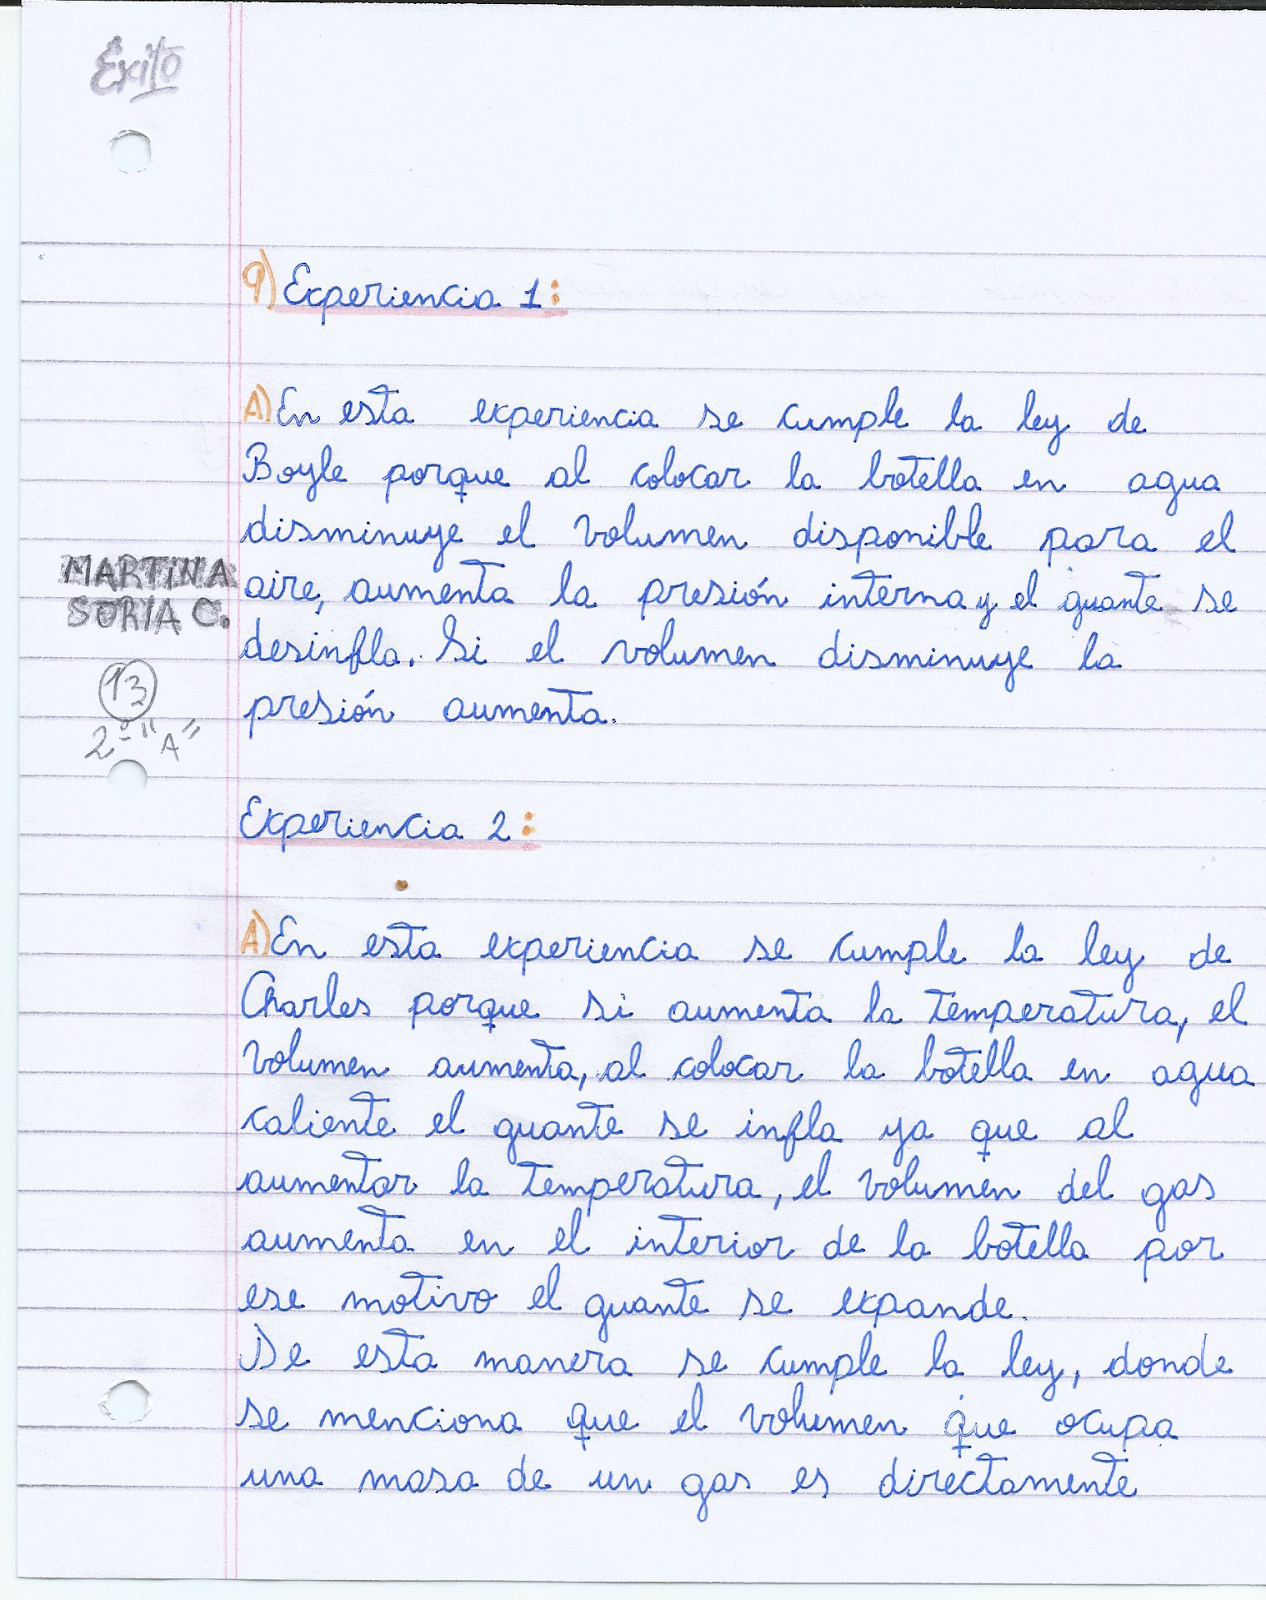 Éxito
9) Experiencia 1:
A) En esta experiencia se cumple la ley de
Boyle porque al colocar la botella en agua
disminuye el volumen disponible para el
aire, aumenta la presión interna y el guante se
desinfla. Si el volumen disminuye la
presión aumenta.
MARTINA
SORIA C.
13
2º "A"
Experiencia 2:
A) En esta experiencia se cumple la ley de
Charles porque si aumenta la temperatura, el
volumen aumenta, al colocar la botella en agua
caliente el guante se infla ya que al
aumentar la temperatura, el volumen del gas
aumenta en el interior de la botella por
ese motivo el guante se expande.
De esta manera se cumple la ley, donde
se menciona que el volumen que ocupa
una masa de un gas es directamente